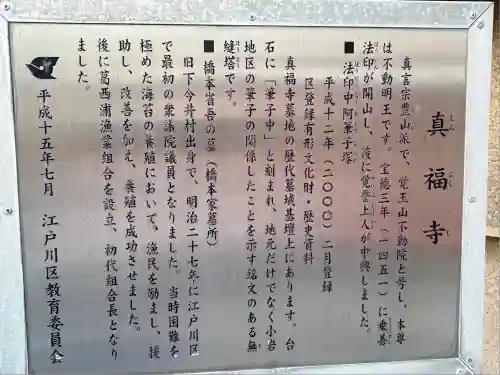 真福寺
しんぷくじ
真言宗豊山派で、覚王山不動院と号し、本尊
は不動明王です。宝徳三年（一四五一）に乗善
法印が開山し、後に覚誉上人が中興しました。
■法印中阿筆子塚
平成十二年（二〇〇〇）二月登録
区登録有形文化財・歴史資料
真福寺墓地の歴代墓域基壇上にあります。台
石に「筆子中」と刻まれ、地元だけでなく小岩
地区の筆子の関係したことを示す銘文のある無
縫塔です。
■橋本省吾の墓（橋本家墓所）
旧下今井村出身で、明治二十七年に江戸川区
で最初の衆議院議員となりました。当時困難を
極めた海苔の養殖において、漁民を励まし、援
助し、改善を加え、養殖を成功させました。
後に葛西浦漁業組合を設立、初代組合長となり
ました。
平成十五年七月　江戸川区教育委員会